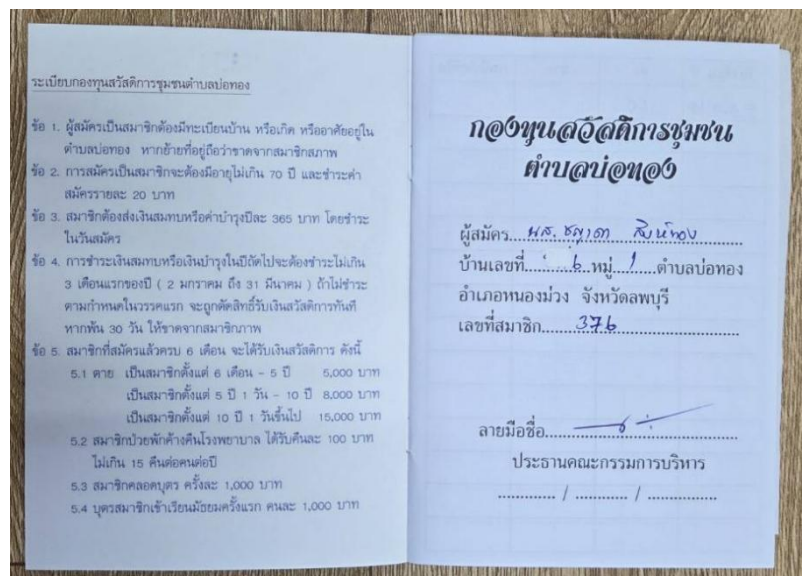 ระเบียบกองทุนสวัสดิการชุมชนตำบลบ่อทอง
ข้อ 1. ผู้สมัครเป็นสมาชิกต้องมีทะเบียนบ้าน หรือเกิด หรืออาศัยอยู่ใน
ตำบลบ่อทอง หากย้ายที่อยู่ถือว่าขาดจากสมาชิกสภาพ
ข้อ 2. การสมัครเป็นสมาชิกจะต้องมีอายุไม่เกิน 70 ปี และชำระค่า
สมัครรายละ 20 บาท
ข้อ 3. สมาชิกต้องส่งเงินสมทบหรือค่าบำรุงปีละ 365 บาท โดยชำระ
ในวันสมัคร
ข้อ 4. การชำระเงินสมทบหรือเงินบำรุงในปีถัดไปจะต้องชำระไม่เกิน
3 เดือนแรกของปี ( 2 มกราคม ถึง 31 มีนาคม ) ถ้าไม่ชำระ
ตามกำหนดในวรรคแรก จะถูกตัดสิทธิ์รับเงินสวัสดิการทันที
หากพ้น 30 วัน ให้ขาดจากสมาชิกภาพ
ข้อ 5. สมาชิกที่สมัครแล้วครบ 6 เดือน จะได้รับเงินสวัสดิการ ดังนี้
5.1 ตาย เป็นสมาชิกตั้งแต่ 6 เดือน - 5 ปี 5,000 บาท
เป็นสมาชิกตั้งแต่ 5 ปี 1 วัน - 10 ปี 8,000 บาท
เป็นสมาชิกตั้งแต่ 10 ปี 1 วันขึ้นไป 15,000 บาท
5.2 สมาชิกป่วยพักค้างคืนโรงพยาบาล ได้รับคืนละ 100 บาท
ไม่เกิน 15 คืนต่อคนต่อปี
5.3 สมาชิกคลอดบุตร ครั้งละ 1,000 บาท
5.4 บุตรสมาชิกเข้าเรียนมัธยมครั้งแรก คนละ 1,000 บาท
กองทุนสวัสดิการชุมชน
ตำบลบ่อทอง
ผู้สมัคร... นส. ชญาดา สิงห์ทอง
บ้านเลขที่........6..หมู่...1....ตำบลบ่อทอง
อำเภอหนองม่วง จังหวัดลพบุรี
เลขที่สมาชิก.......376.......
ลายมือชื่อ.......
ประธานคณะกรรมการบริหาร
............. / ............ / ................